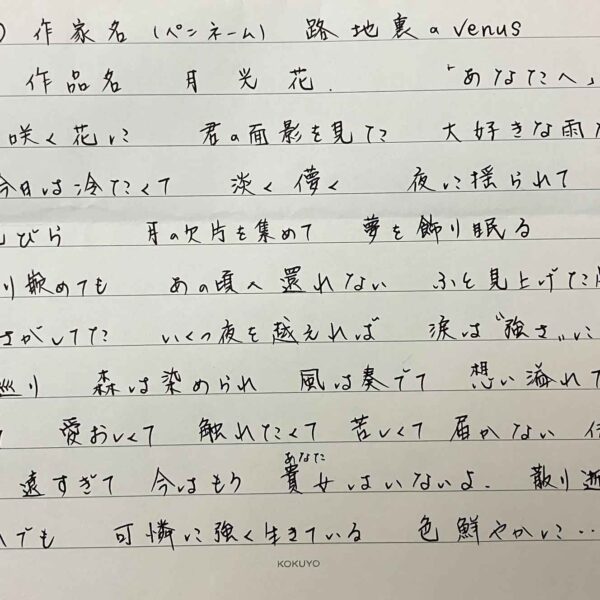 作家名(ペンネーム) 路地裏のvenus
作品名 月光花. 「あなたへ」
咲く花に 君の面影を見た 大好きな雨
今日は冷たくて 淡く儚く 夜に揺られて
びら 月の欠片を集めて 夢を飾り眠る
り嵌めても あの頃へ還れない ふと見上げた
さがしてた いくつ夜を越えれば 涙は“強さ”に
巡り 森は染められ 風は奏でて 想い溢れて
愛おしくて 触れたくて 苦しくて 届かない
あなた
遠すぎて 今はもう 貴女はいないよ. 散り逝
でも 可憐に強く生きている 色鮮やかに…
KOKUYO